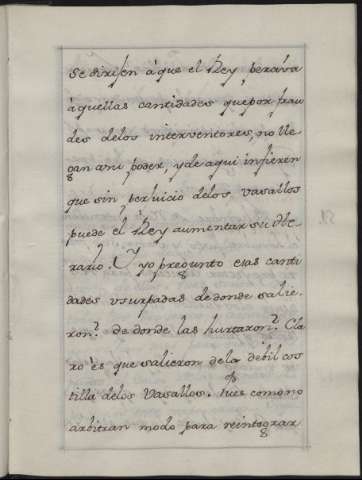 se dirijen à que el Rey, perciva
àquellas cantidades que por frau
des delos interventores, no lle
gan a su poder, y de aqui infieren
que sin perjuicio delos vasallos
puede el Rey aumentar su He
rario. Y yo pregunto esas canti
dades vsurpadas de donde salie
ron? de donde las hurtaron? Cla
ro ès que salieron dela debil cos
tilla delos Vasallos. Pues como no
arbitran modo para reintegrar